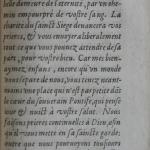 belle demeure de l'eternité, par un che-
empourpré de vostre sang. La
charité du sainct Siege devancera vos
prieres, & vous envoyer a liberalement
tout ce que vous pouvez attendre de sa
part, pour vostre bien. Car mes bien-
aymez, enfans, encore qu'un monde
vous separe de nous, vous tenez neant-
moins une place qui n'est pas petite dãs
le cœur du souverain Pontife, qui pense
& nuict à vostre salut. Nous
faisons prieres continuelles à Dieu, afin
qu'il vous mette en sa saincte garde;
que nous pourvoyons tousiours